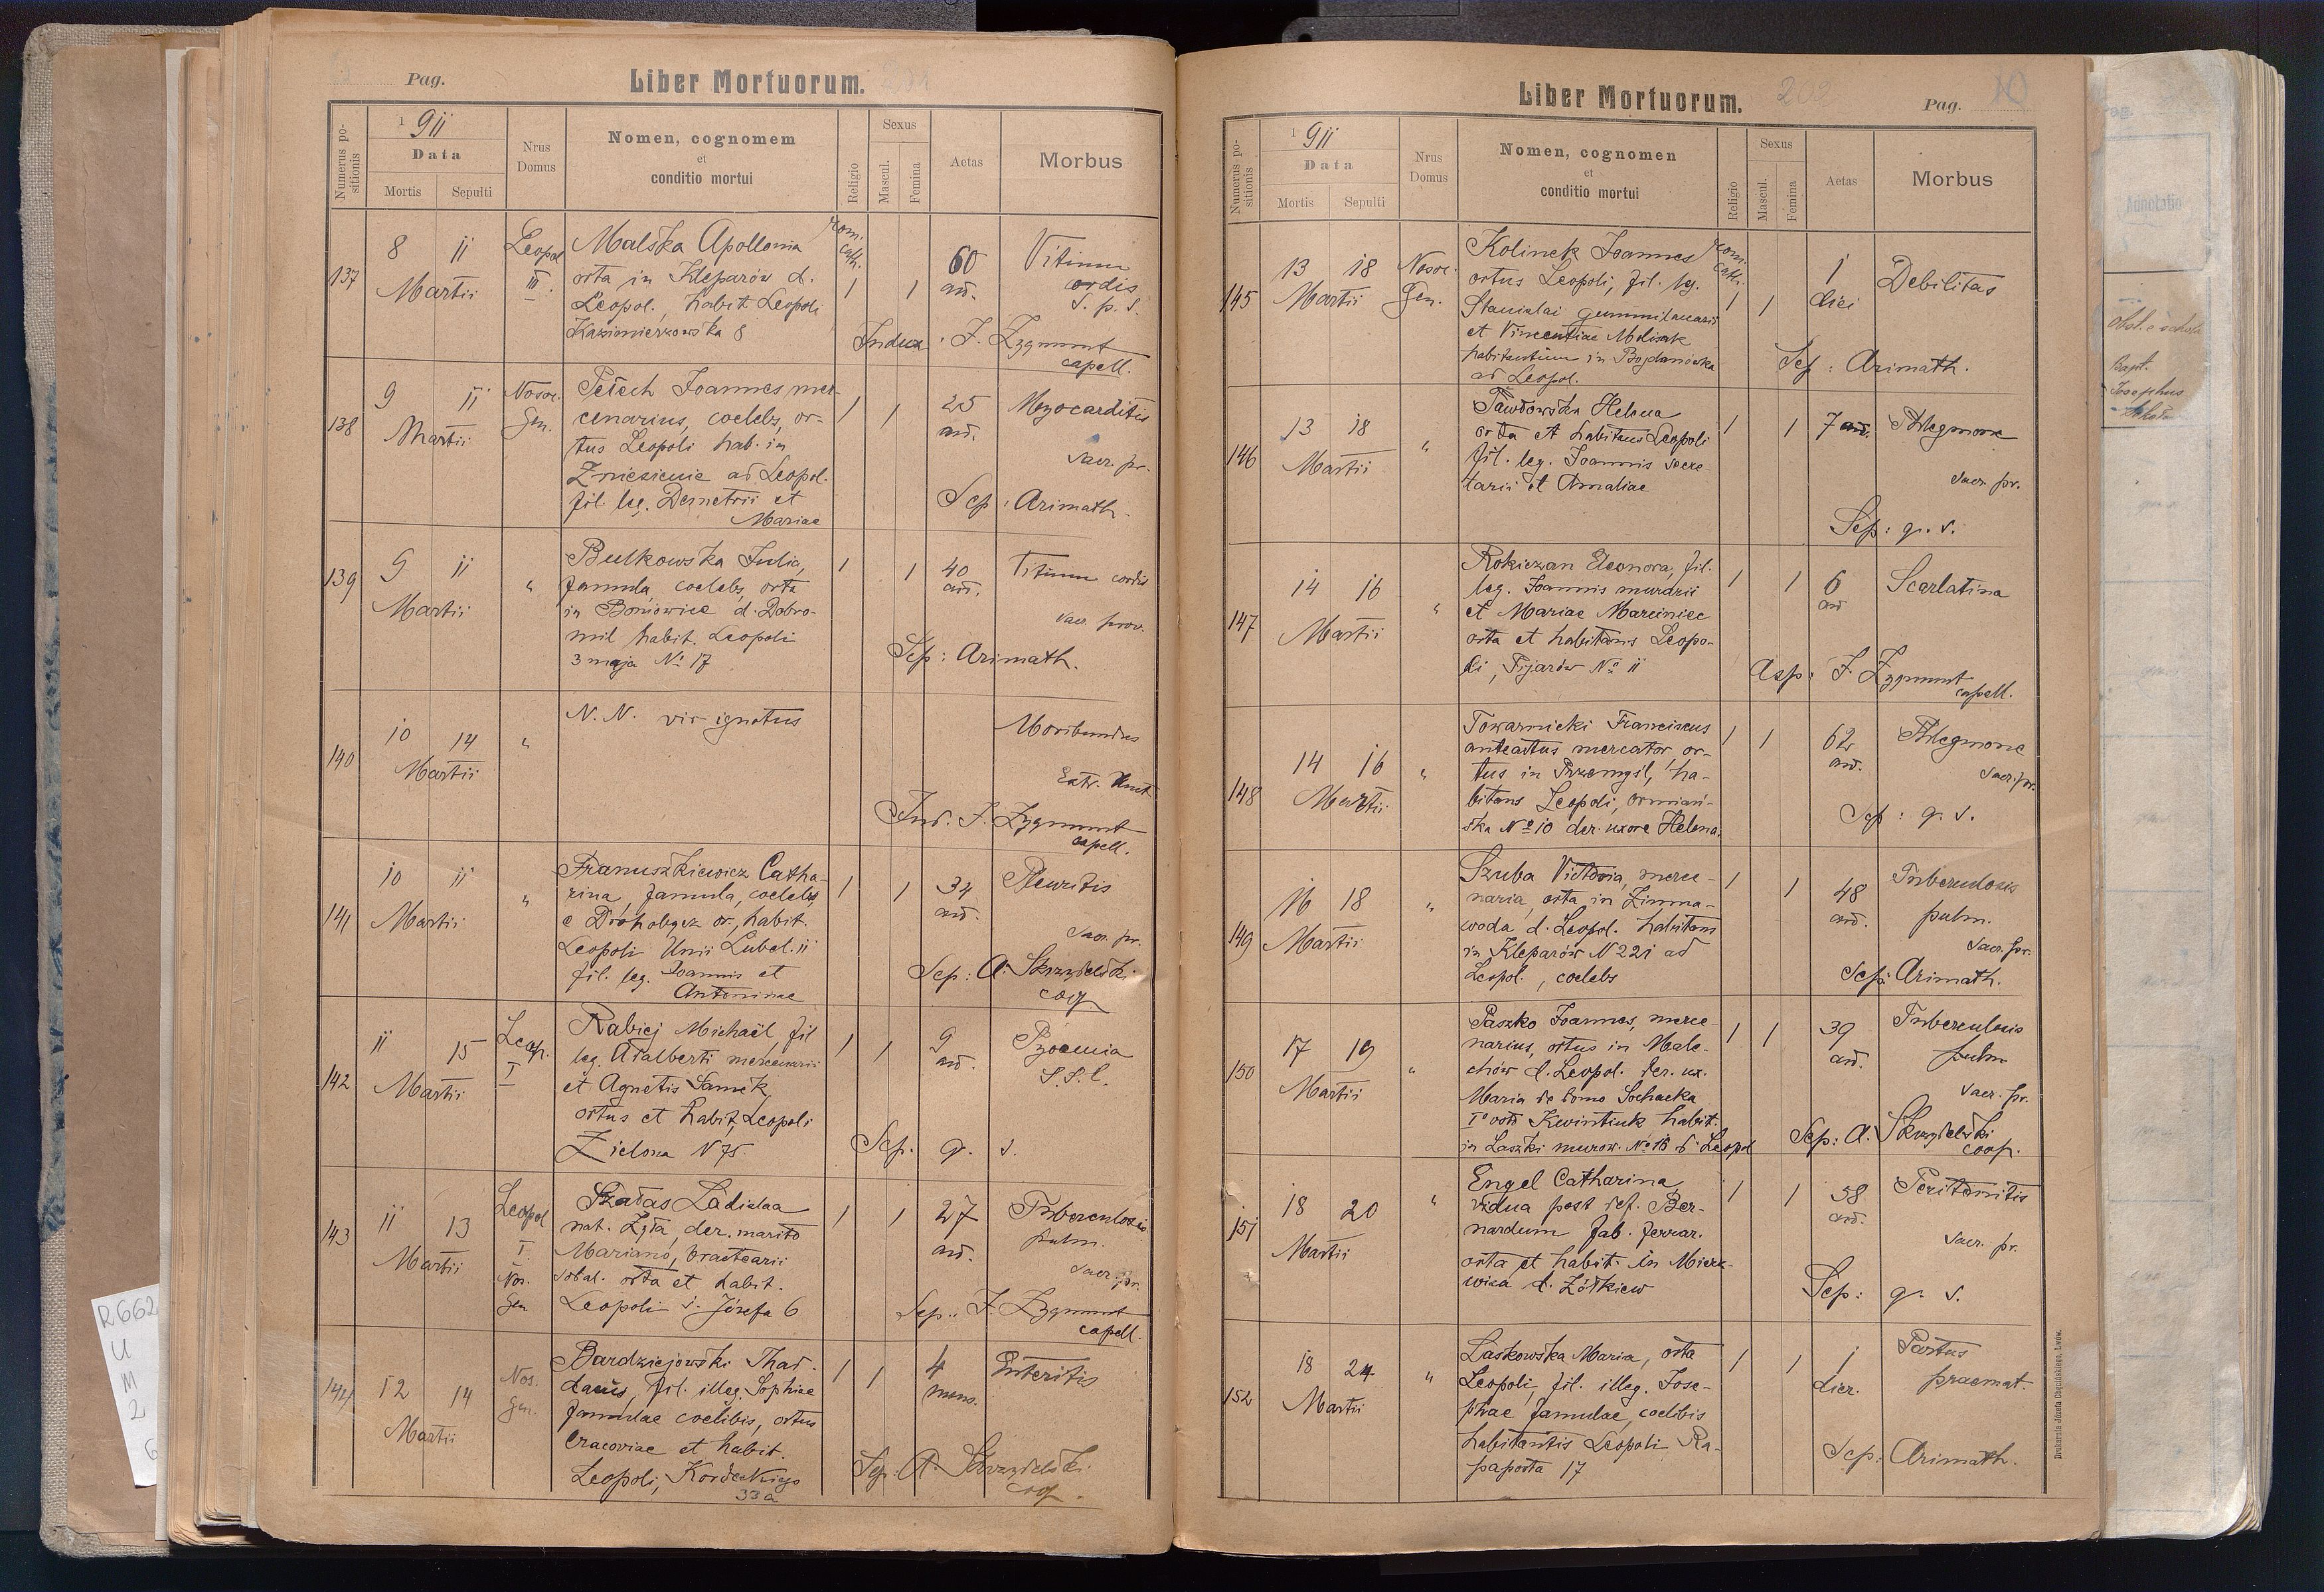 Pag.
Liber Mortuorum.
Numerus po-
sitionis
1911
Data
Mortis
Sepulti
Nrus
Domus
Nomen, cognomem
et
conditio mortui
Religio
Sexus
Mascul.
Femina
Aetas
Morbus
137
8 11
Martii
Leopol
III.
Malska Apollonia
orta in Kleparów d.
Leopol., habit. Leopoli
Kazimierzowska 8
rom.
cath.
1
1
60
an.
Vitium
cordis
S. p. S.
Indux. F. Zygmunt
capell.
138
9 11
Martii
Nosoc.
Gen.
Petech Joannes mer-
cenarius, coelebs, or-
tus Leopoli hab. in
Zniesienie ad Leopol.
fil. leg. Demetrii et
Mariae
1
1
25
an.
Myocarditis
Sacr. pr.
Sep: Arimath.
139
9 11
Martii
"
Bulkowska Julia,
famula, coelebs, orta
in Boniowice d. Dobro-
mil habit. Leopoli
3 maja No 17
1
1
40
an.
Vitium cordis
Sacr. prov.
Sep: Arimath.
140
10 14
Martii
"
N. N. vir ignotus
Moribundus
Extr. Unct.
Ind. F. Zygmunt
capell.
141
10 11
Martii
"
Franuszkiewicz Catha-
rina, famula, coelebs,
e Drohobycz or., habit.
Leopoli Unii Lubel. 11
fil. leg. Joannis et
Antoninae
1
1
34
an.
Pleuritis
Sacr. pr.
Sep: A. Skrzydelski
coop.
142
11 15
Martii
Leop.
I
Rabiej Michaël, fil
leg. Adalberti mercenarii
et Agnetis Samek,
ortus et habit, Leopoli
Zielona N 75.
1
1
9
an.
Pyoemia
S. S. C.
Sep. g. s.
143
11 13
Martii
Leopol
I.
Nos.
Gen
Szadas Ladislaa
nat. Zyła, der. marito
Mariano, bractearii
sodal. orta et habit.
Leopoli ś. Józefa 6
1
1
27
an.
Tuberculosis
pulm.
Sacr. pr.
Sep.: F. Zygmunt
capell.
144
12 14
Martii
Nos.
Gen.
Bardziejowski Thad-
daeus, fil. illeg. Sophiae
famulae coelibis, ortus
Cracoviae et habit.
Leopoli, Kordeckiego
33a
1
1
4
mens.
Enteritis
Sep: A. Skrzydelski
coop.
Liber Mortuorum.
209
Pag.
10
Numerus po-
sitionis
1911
Data
Mortis
Sepulti
Nrus
Domus
Nomen, cognomen
et
conditio mortui
Religio
Sexus
Mascul.
Femina
Aetas
Morbus
145
13 18
Martii
Nosoc.
Gen.
Kolinek Joannes
ortus Leopoli, fil. leg.
Stanislai
et Vincentiae Molisak
habitantium in Bogdanówka
ad Leopol.
rom.
cath.
1
1
1
diei
Debilitas
Sep: Arimath.
146
13 18
Martii
"
Pawłowska Helena
orta et habitans Leopoli
fil. leg. Joannis secre-
tarii et Amaliae
1
1
7 an.
Phlegmone
Sacr. pr.
Sep: g. s.
147
14 16
Martii
"
Rokiczan Eleonora, fil.
leg. Joannis murarii
et Mariae Marciniec
orta et habitans Leopo-
li, Pijarów No 11
1
1
6
an
Scarlatina
Asp: F. Zygmunt
capell.
148
14 16
Martii
"
Towarnicki Franciscus
anteactus mercator, or-
tus in Przemyśl, ha-
bitans Leopoli, ormiań-
ska No 10 der. uxore Helena.
1
1
62
an.
Phlegmone
Sacr. pr.
Sep: g. s.
149
16 18
Martii
"
Szuba Victoria, merce-
naria, orta in Zimna-
woda d. Leopol. habitans
in Kleparów N 221 ad
Leopol., coelebs
1
1
48
an.
Tuberculosis
pulm.
Sacr. pr.
Sep: Arimath.
150
17 19
Martii
"
Paszko Joannes, merce-
narius, ortus in Male-
chów d. Leopol. der. ux.
Maria de domo Sochacka
Io voto Kwintiuk habit.
in Laszki murow. No 18 d. Leopol
1
1
39
an.
Tuberculosis
pulm
Sacr. pr.
Sep: A. Skrzydelski
coop.
151
18 20
Martii
"
Engel Catharina,
vidua post def. Ber-
nardum fab. ferrar.
orta et habit. in Mierz-
wica d. Żółkiew
1
1
58
an.
Peritonitis
Sacr. pr.
Sep: g. s.
152
18 24
Martii
"
Laskowska Maria, orta
Leopoli, fil. illeg. Jose-
phae famulae, coelibis
habitantis Leopoli Ra-
paporta 17
1
1
1
dier.
Partus
praemat.
Sep: Arimath.
Drukarnia Józefa Chęcińskiego, Lwów.
Annotatio
Bapt.
Josephus
R662
U
M
2
6